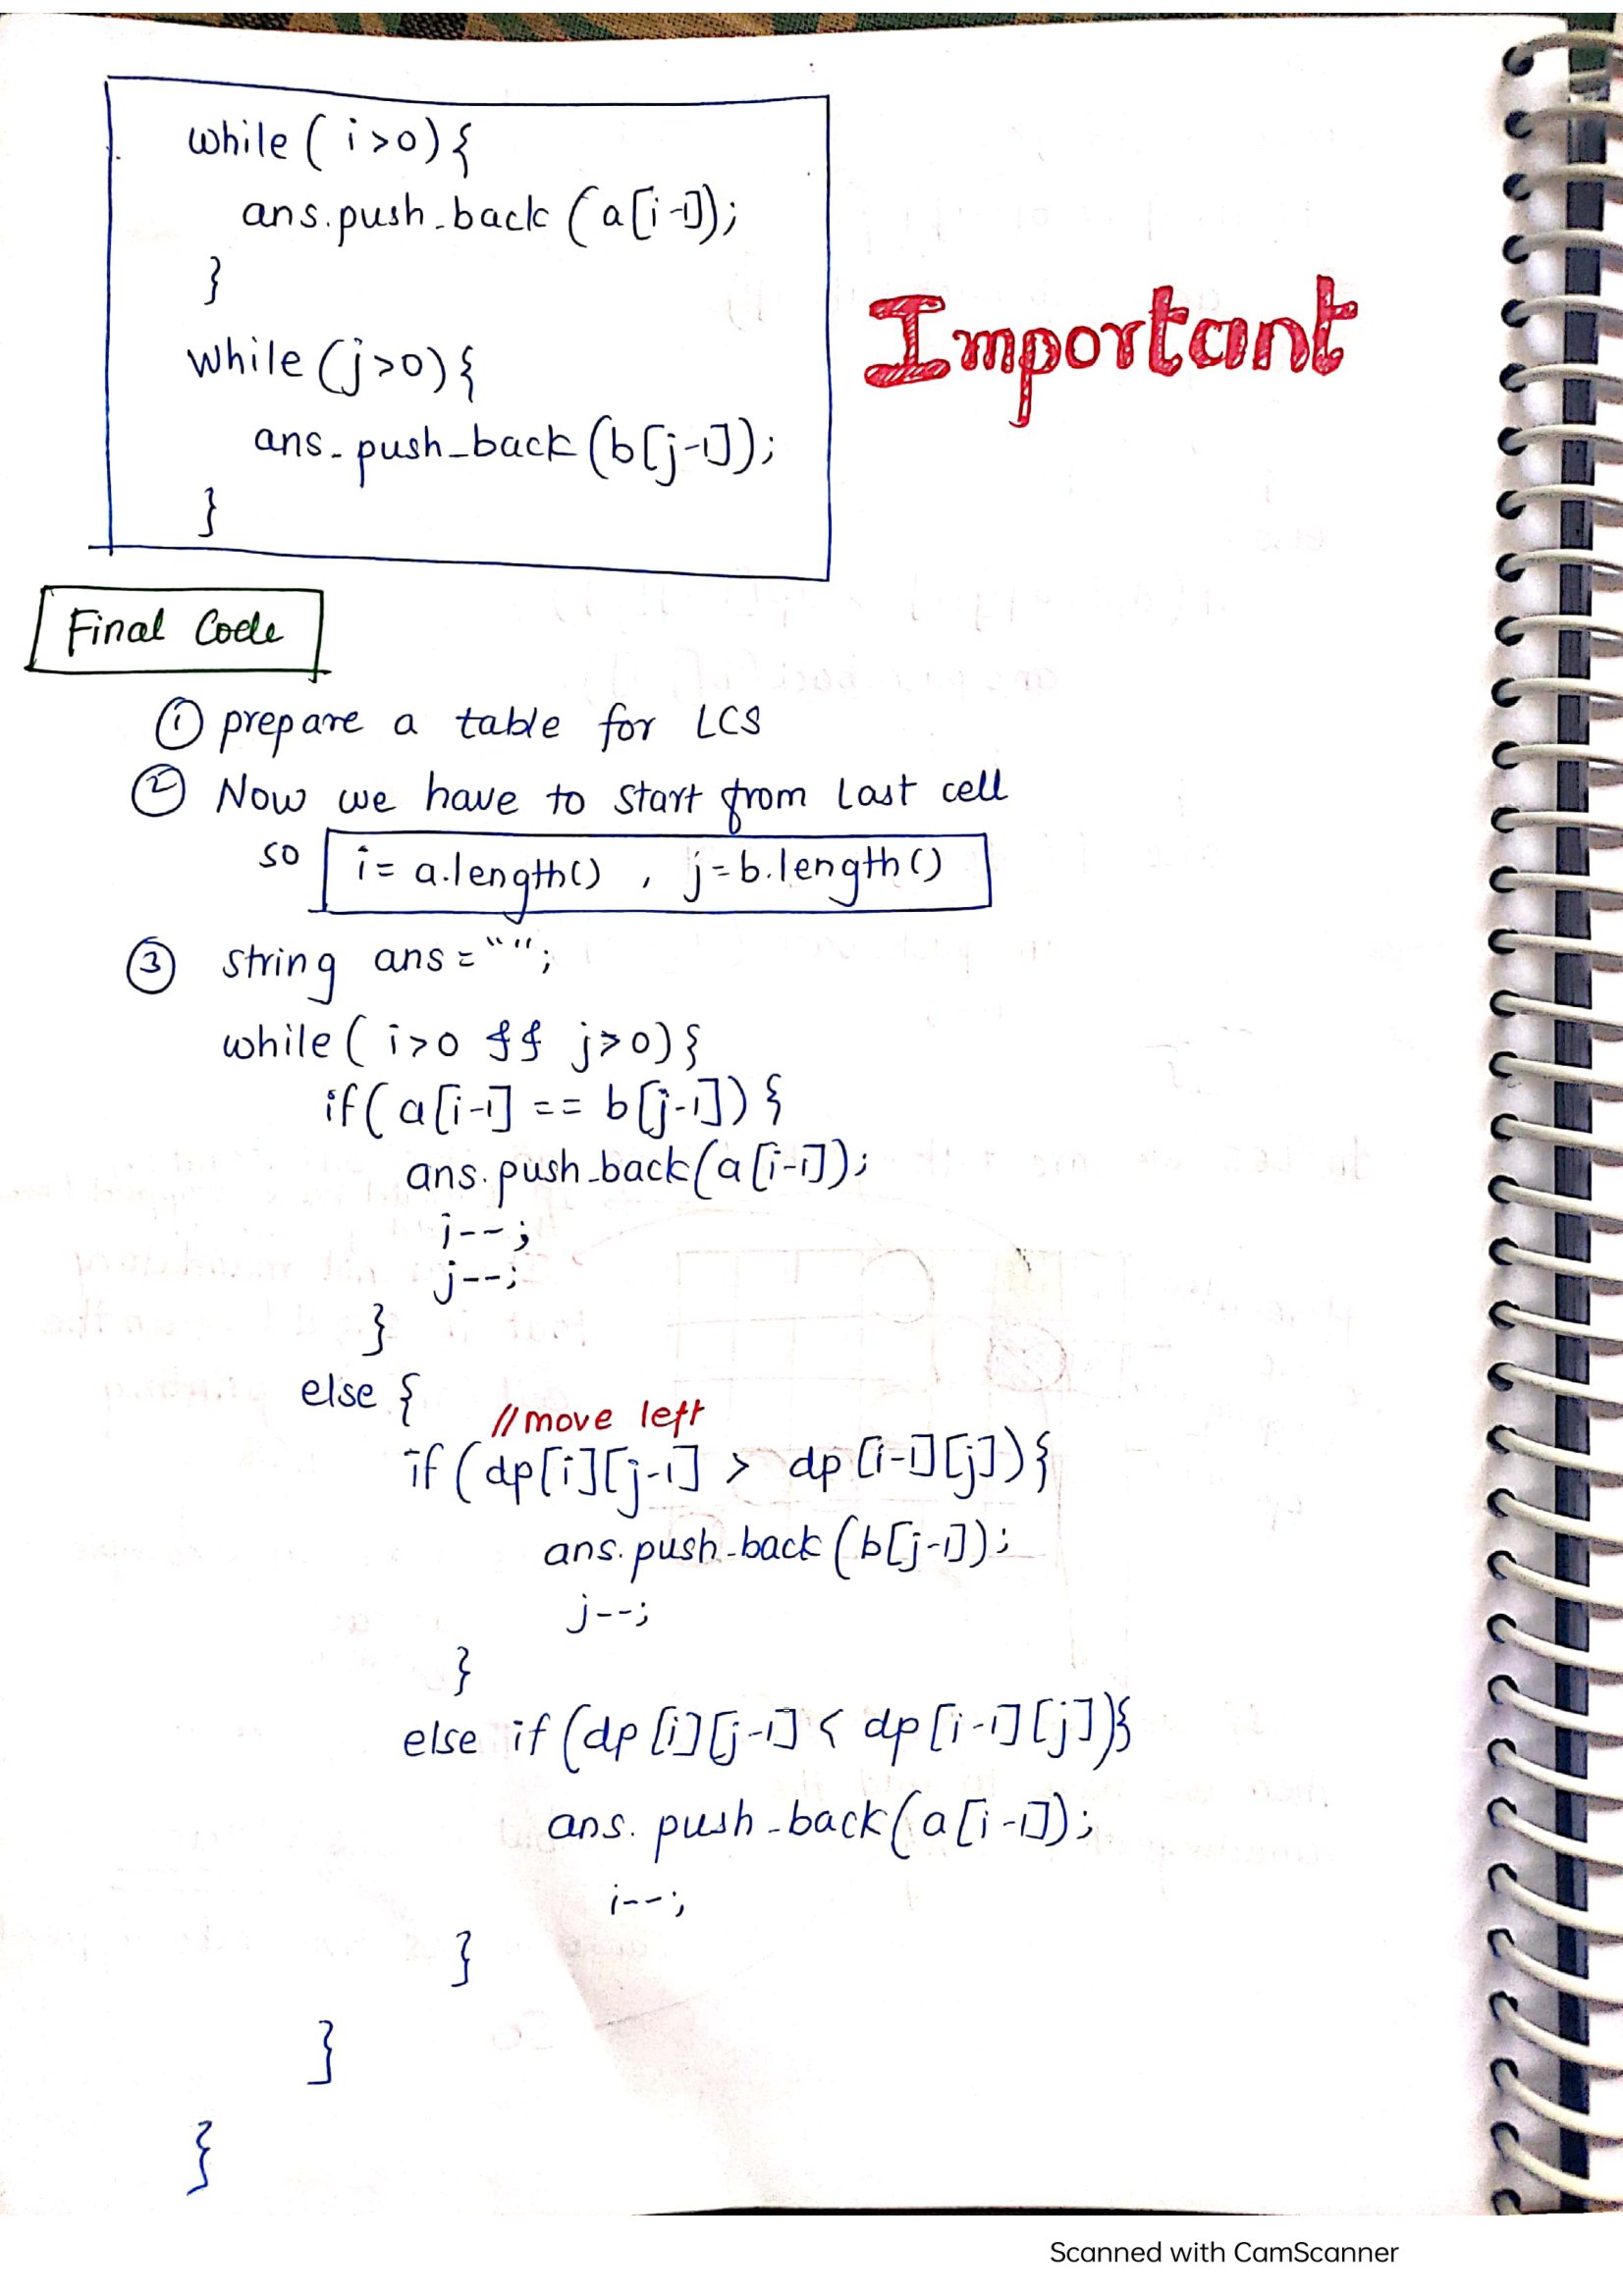 while ( i>0) {
ans.push_back (a[i-1]);
}
while (j>0) {
ans_push_back (b[j-1]);
}
Important
Final Code
① prepare a table for LCS
② Now we have to start from last cell
so i= a.length() , j=b.length()
③ string ans="";
while ( i>0 && j>0) {
if( a[i-1] == b[j-1]) {
ans.push_back(a[i-1]);
i--;
j--;
}
else {
//move left
if (dp[i][j-1] > dp[i-1][j]) {
ans.push_back (b[j-1]);
j--;
}
else if (dp[i][j-1] < dp[i-1][j]){
ans.push_back(a[i-1]);
i--;
}
}
}
Scanned with CamScanner